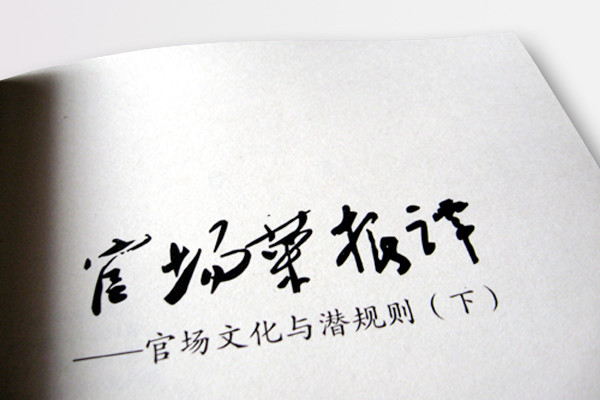 官场菜根谭
——官场文化与潜规则（下）